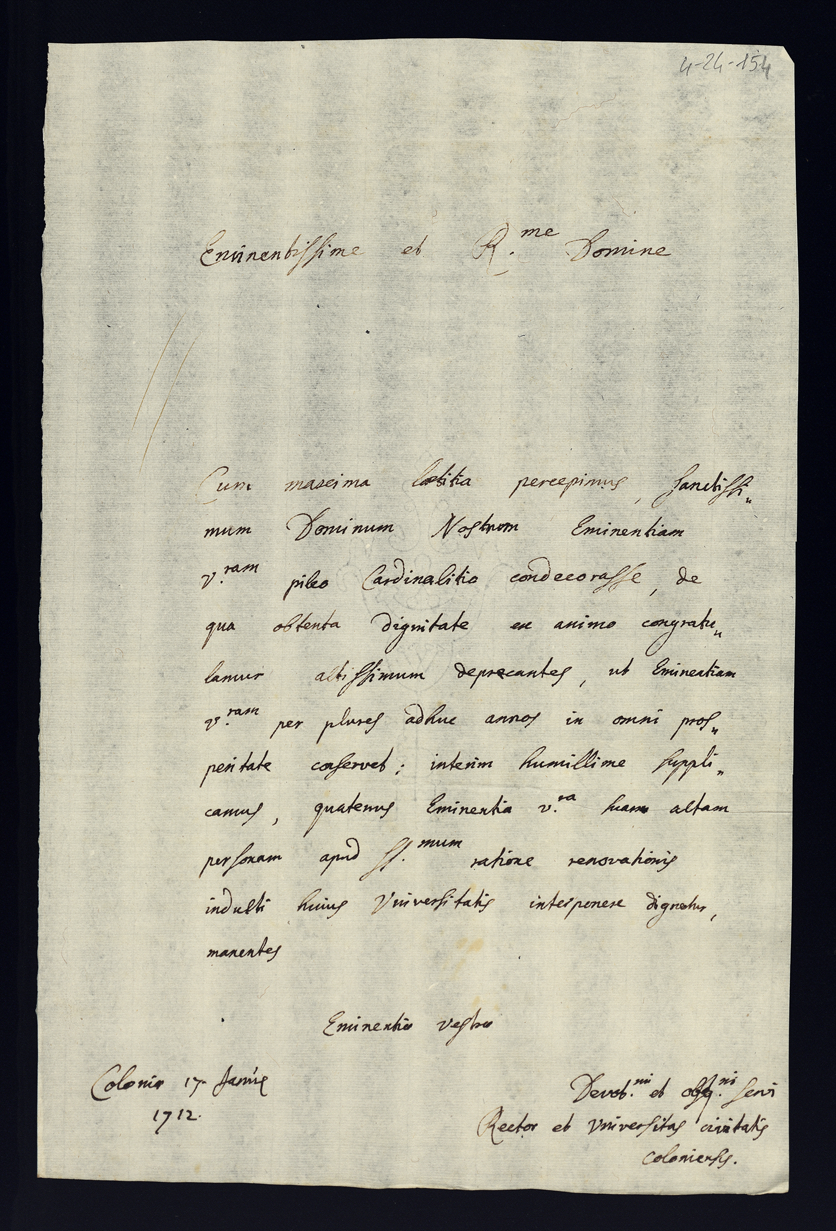 4-24-154
Eminentissime et R.me Domine
Cum maxima lætitia percepimus, sanctissi„
mum Dominum Nostrum Eminentiam
v.ram pileo Cardinalitio condecorasse, de
qua obtenta dignitate ex animo congratu„
lamur altissimum deprecantes, ut Eminentiam
v.ram per plures adhuc annos in omni pros„
peritate conservet; interim humillime suppli„
camus, quatenus Eminentia v.ra suam altam
personam apud ss.mum ratione renovationis
indulti huius Universitatis interponere dignetur,
manentes
Eminentiæ vestræ
Coloniæ 17. Januarii
1712.
Devot.mi et obsq.mi servi
Rector et Universitas civitatis
Coloniensis.